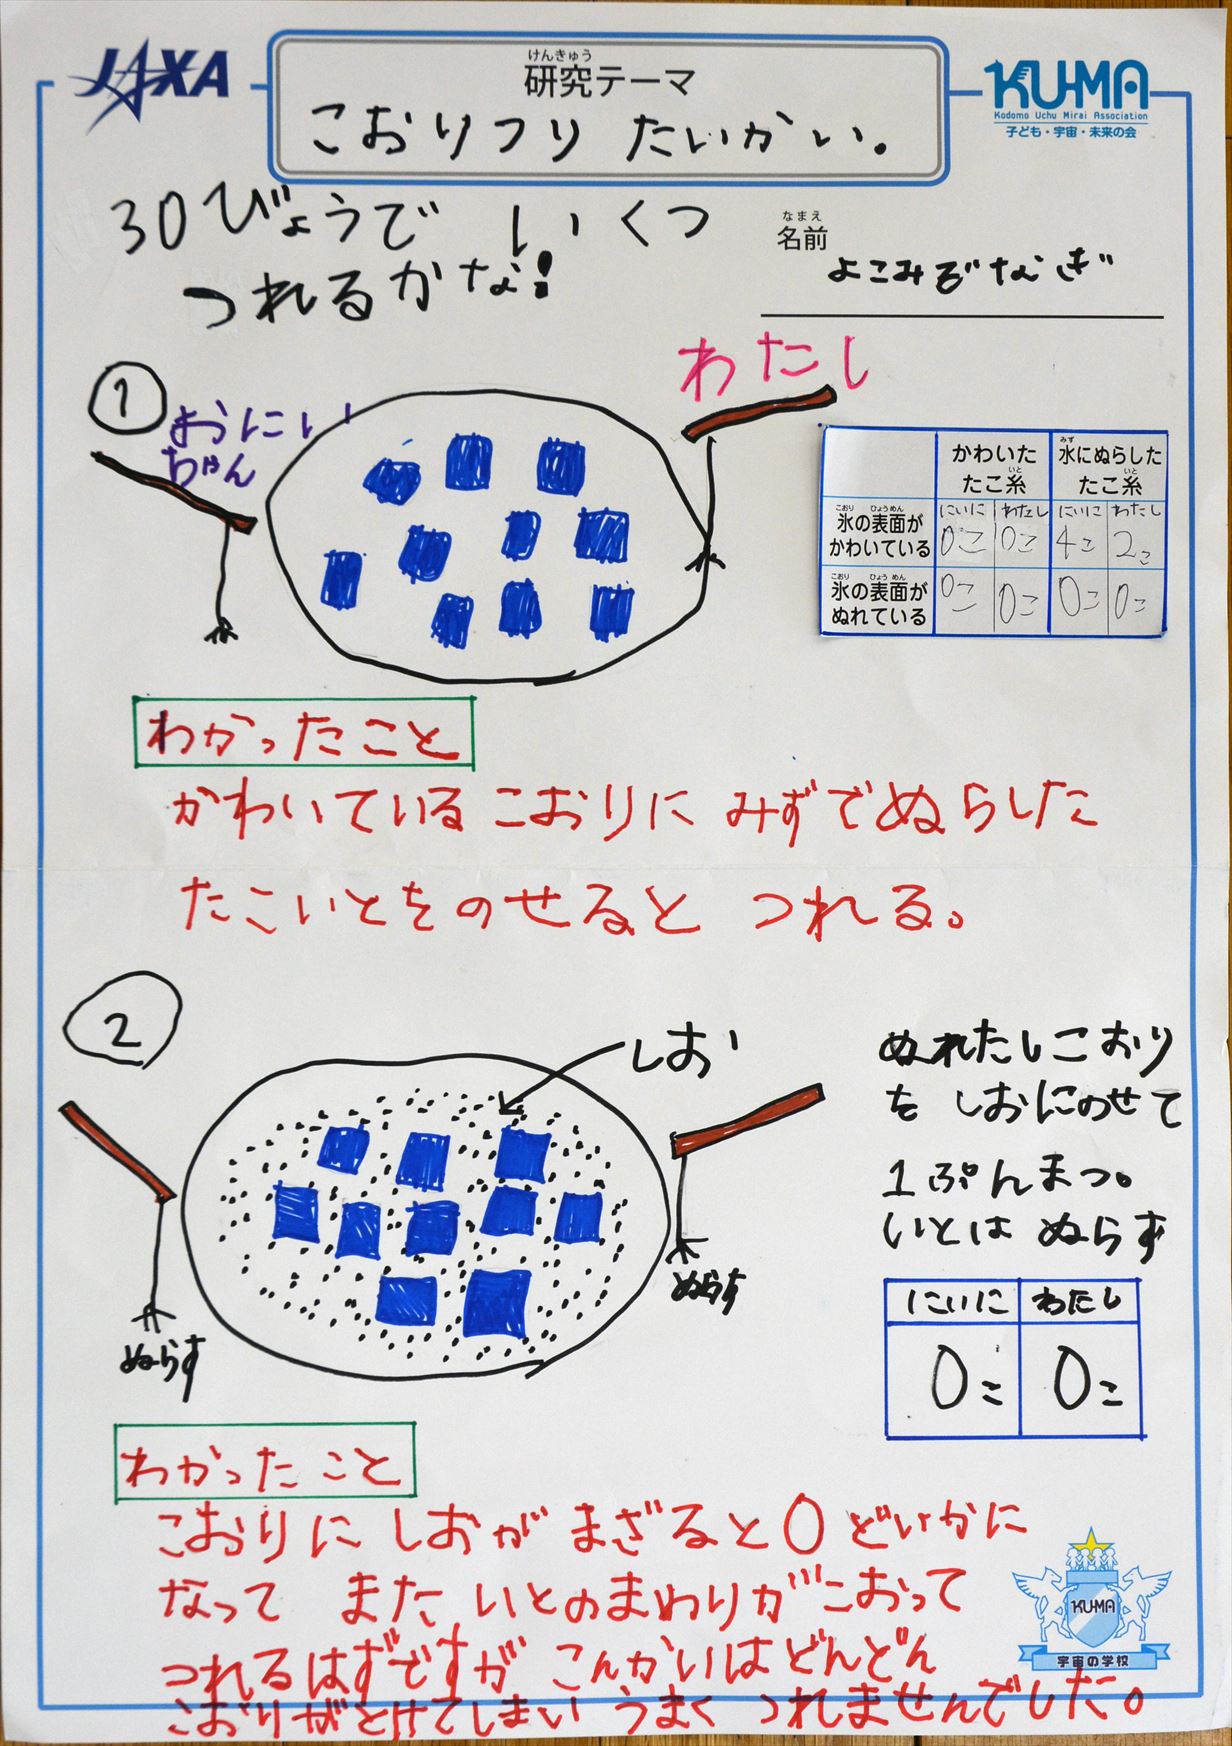 JAXA
けんきゅう
研究テーマ
こおりつり たいかい。
KU-MA
Kodomo Uchu Mirai Association
子ども・宇宙・未来の会
30びょうで いくつ
つれるかな!
なまえ
名前
よこみぞなぎ
1
おにい
ちゃん
わたし
かわいた
たこ糸
いと
みず
水にぬらした
たこ糸
いと
にいに わたし にいに わたし
こおり ひょうめん
氷の表面が
かわいている
0こ 0こ 4こ 2こ
こおり ひょうめん
氷の表面が
ぬれている
0こ 0こ 0こ 0こ
わかったこと
かわいているこおりに みずでぬらした
たこいとをのせると つれる。
2
しお
ぬれたしこおり
を しおにのせて
1ぷんまつ。
いとは ぬらす
ぬらす
ぬらす
にいに わたし
0こ 0こ
わかったこと
こおりに しおがまざると0どいかに
なって また いとのまわりがこおって
つれるはずですが こんかいはどんどん
こおりがとけてしまい うまく つれませんでした。
KU-MA
宇宙の学校